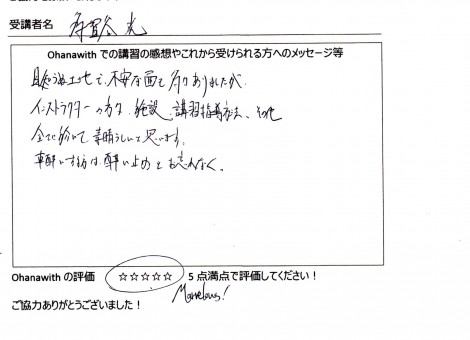 受講者名
Ohanawith での講習の感想やこれから受けられる方へのメッセージ等
不安な面も多々ありましたが、
インストラクターの方々、施設、講習指導方法、その他
全てに於いて素晴らしいと思います。
車酔いする方は、酔い止めもお忘れなく。
Ohanawith の評価 ☆☆☆☆☆ 5 点満点で評価してください！
Marvelous!
ご協力ありがとうございました！